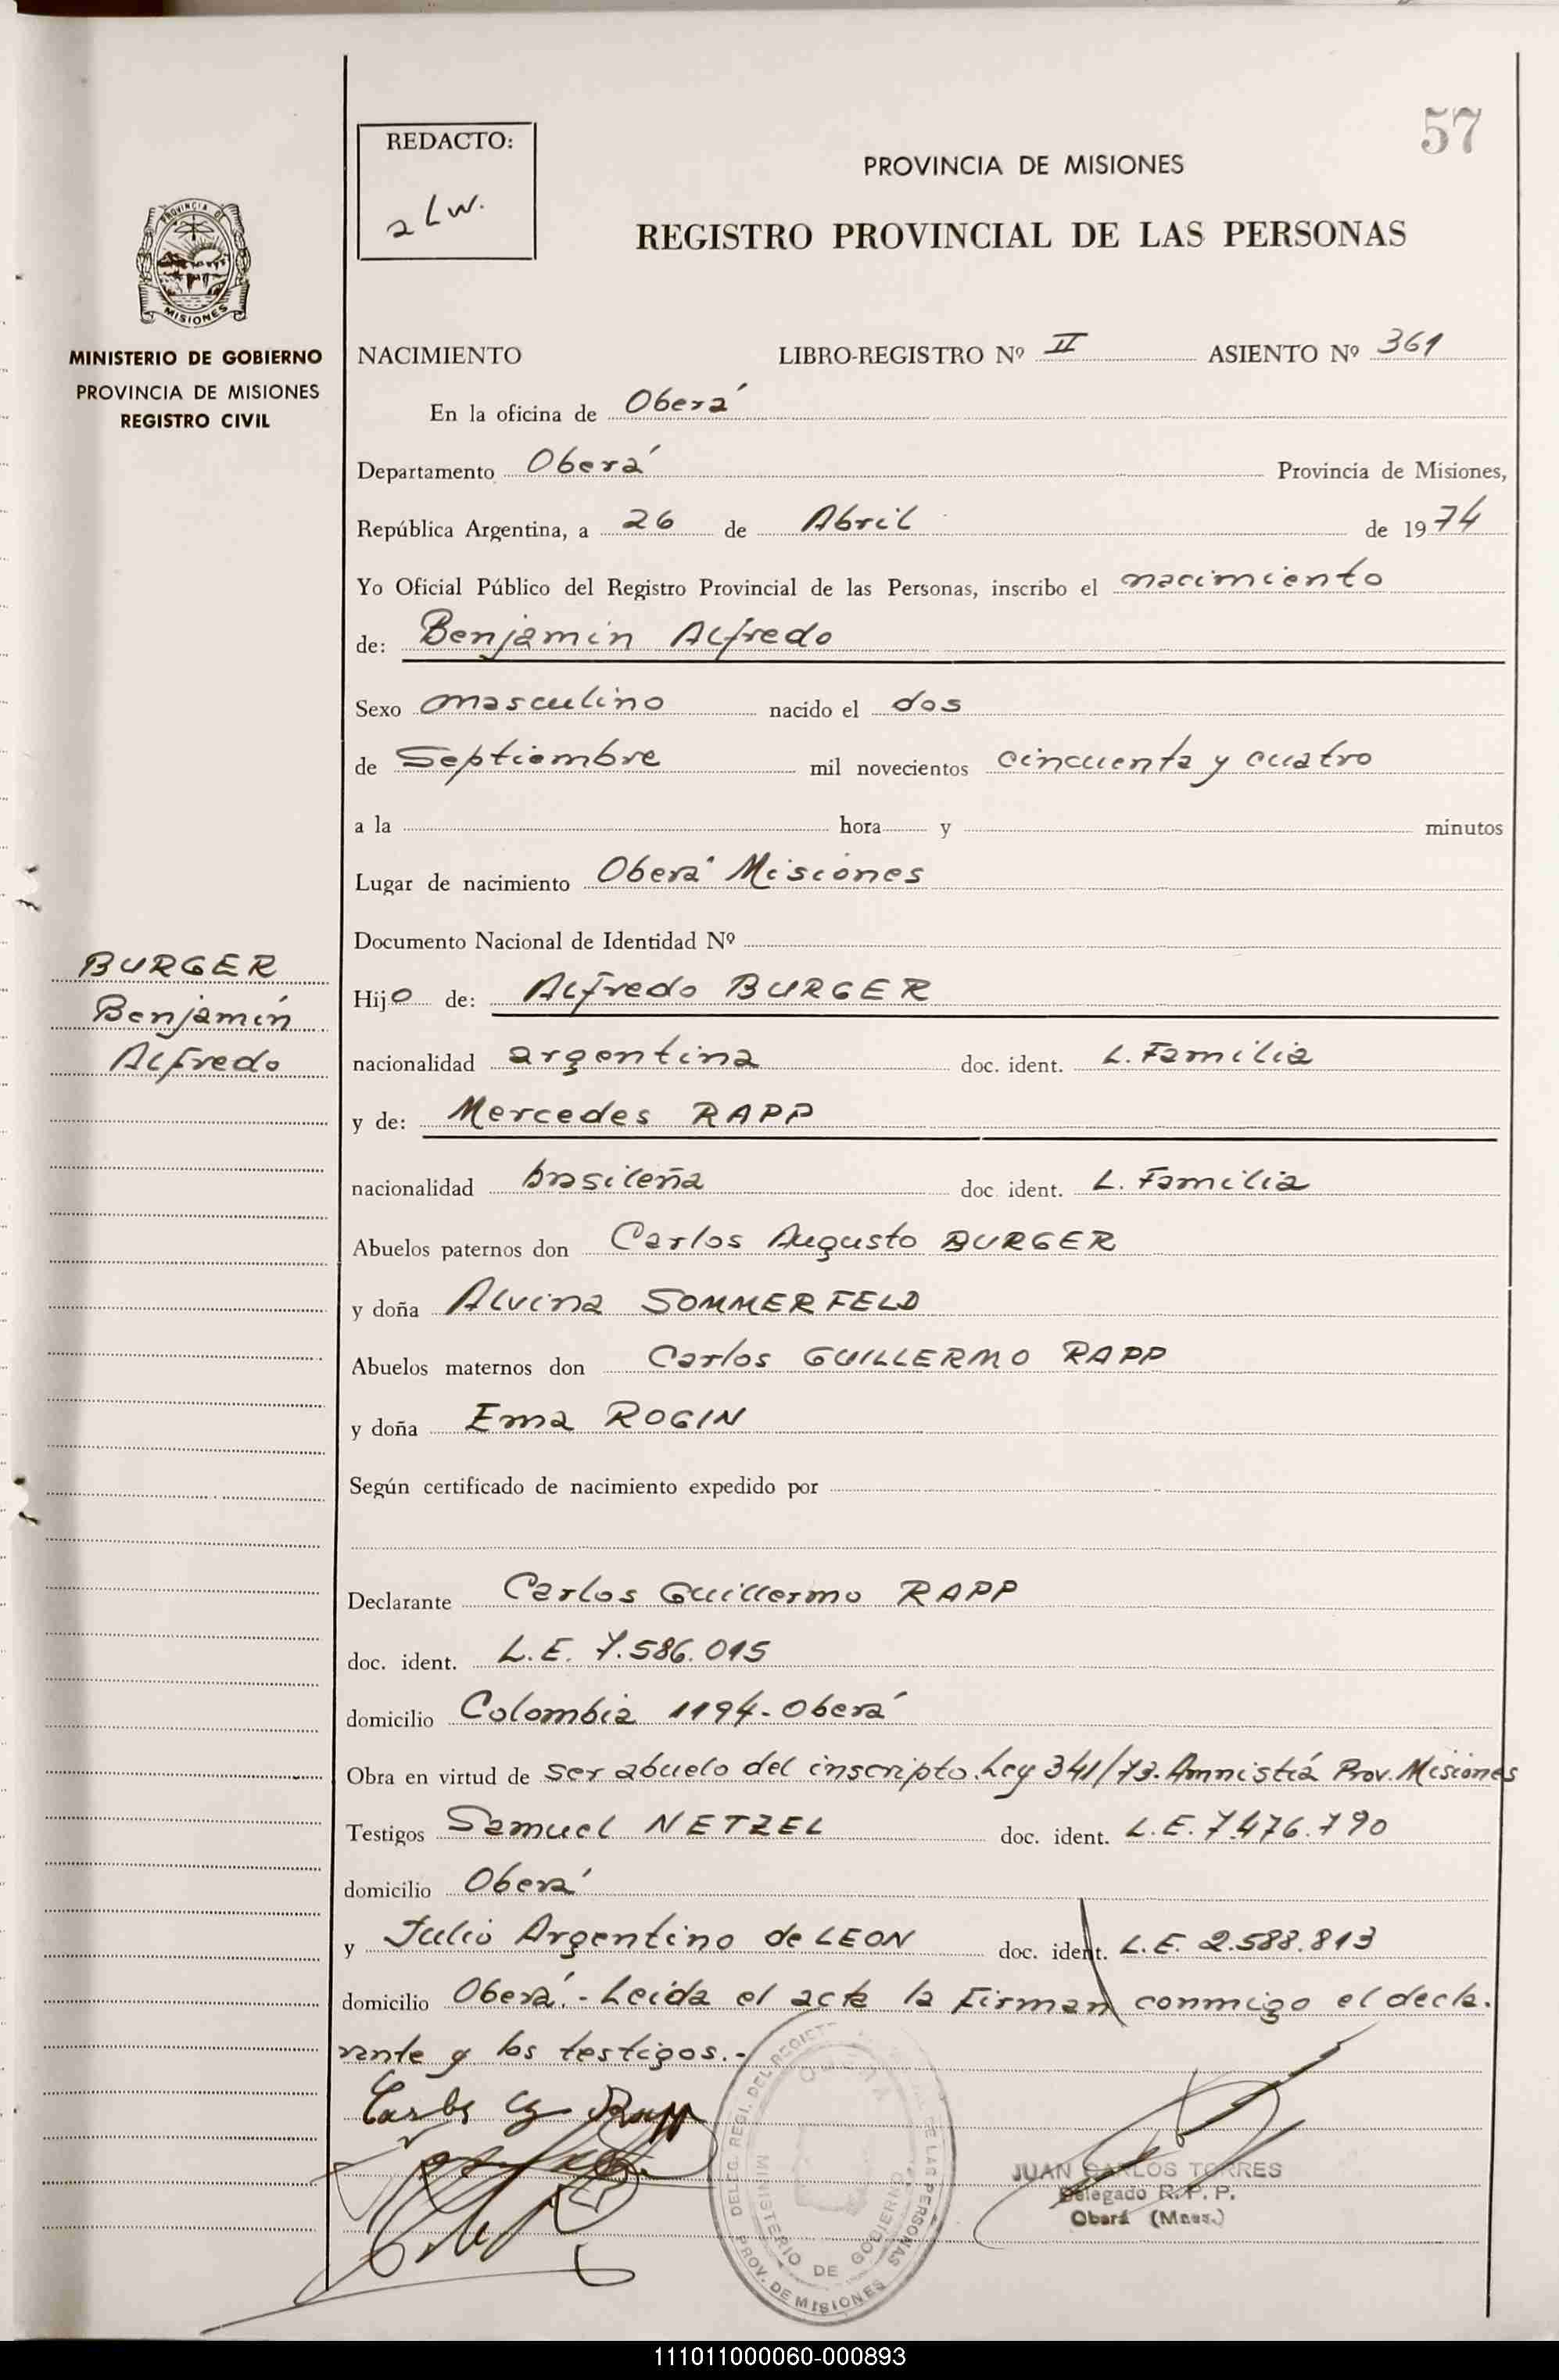 57
REDACTO:
PROVINCIA DE MISIONES
REGISTRO PROVINCIAL DE LAS PERSONAS
PROVINCIA DE
MISIONES
MINISTERIO DE GOBIERNO
PROVINCIA DE MISIONES
REGISTRO CIVIL
NACIMIENTO LIBRO-REGISTRO Nº II ASIENTO Nº 361
En la oficina de Oberá
Departamento Oberá Provincia de Misiones,
República Argentina, a 26 de Abril de 1974
Yo Oficial Público del Registro Provincial de las Personas, inscribo el nacimiento
de: Benjamin Alfredo
Sexo masculino nacido el dos
de Septiembre mil novecientos cincuenta y cuatro
a la hora y minutos
Lugar de nacimiento Oberá Misiones
Documento Nacional de Identidad Nº
BURGER
Benjamín
Alfredo
Hijo de: Alfredo BURGER
nacionalidad argentina doc. ident. L. Familia
y de: Mercedes RAPP
nacionalidad brasileña doc. ident. L. Familia
Abuelos paternos don Carlos Augusto BURGER
y doña Alvina SOMMERFELD
Abuelos maternos don Carlos GUILLERMO RAPP
y doña Ema ROGIN
Según certificado de nacimiento expedido por
Declarante Carlos Guillermo RAPP
doc. ident. L.E. 7.586.015
domicilio Colombia 1194-Oberá
Obra en virtud de ser abuelo del inscripto. Ley 341/73. Amnistía Prov. Misiones
Testigos Samuel NETZEL doc. ident. L.E. 7.476.790
domicilio Oberá
y Julio Argentino de LEON doc. ident. L.E. 2.588.813
domicilio Oberá.- Leida el acta la firman conmigo el decla.
rante y los testigos.-
Carlos G Rapp
DELEG. REGI. DEL REGIST DE LAS PERSONAS
MINISTERIO DE GOBIERNO
PROV. DE MISIONES
JUAN CARLOS TORRES
Delegado R. P. P.
Oberá (Mnes.)
111011000060-000893